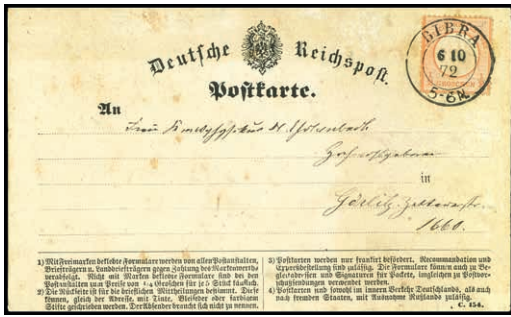 Deutsche Reichspost.
Postkarte.
BIBRA
6 10
72
5-6N.
An
in
Görlitz,
1660.
1) Mit Freimarken beklebte Formulare werden von allen Postanstalten,
Briefträgern u. Landbriefträgern gegen Zahlung des Markenwerths
verabfolgt. Nicht mit Marken beklebte Formulare sind bei den
Postanstalten zum Preise von 1/4 Groschen für je 5 Stück käuflich.
2) Die Rückseite ist für die brieflichen Mittheilungen bestimmt. Diese
können, gleich der Adresse, mit Tinte, Bleifeder oder farbigem
Stifte geschrieben werden. Der Absender braucht sich nicht zu nennen.
3) Postkarten werden nur frankirt befördert. Recommandation und
Expreßbestellung sind zulässig. Die Formulare können auch zu Be-
gleitadressen und Signaturen für Packete, imgleichen zu Postvor-
schußsendungen verwendet werden.
4) Postkarten sind sowohl im innern Verkehr Deutschlands, als auch
nach fremden Staaten, mit Ausnahme Rußlands zulässig.
C. 154.